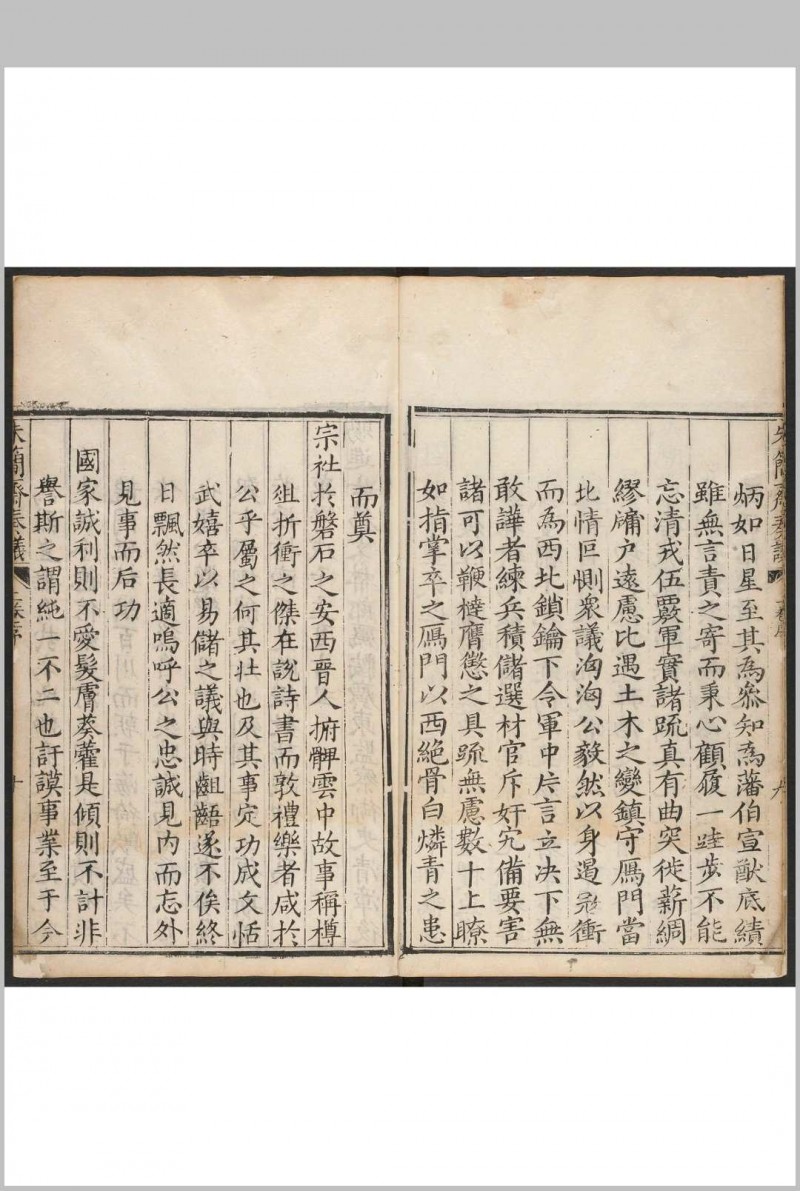 炳如日星至其為叅知為藩伯宣猷底績
雖無言責之寄而秉心顧履一跬步不能
忘清戎伍覈軍實諸疏真有曲突徙薪綢
繆牖户遠慮比遇土木之變鎮守鴈門當
北情叵惻衆議洶洶公毅然以身遏衝
而為西北鎖鑰下令軍中片言立决下無
敢譁者練兵積儲選材官斥奸宄備要害
諸可以鞭撻膺懲之具疏無慮數十上瞭
如指掌卒之鴈門以西絕骨白燐青之患
而奠
宗社扵磐石之安西晋人捬髀雲中故事稱樽
俎折衝之傑在說詩書而敦禮樂者咸扵
公乎屬之何其壯也及其事定功成文恬
武嬉卒以易儲之議與時齟齬遂不俟終
日飄然長適嗚呼公之忠誠見内而忘外
見事而后功
國家誠利則不愛髮膚葵藿是傾則不計非
譽斯之謂純一不二也訏謨事業至于今
朱簡齋奏議
序
十